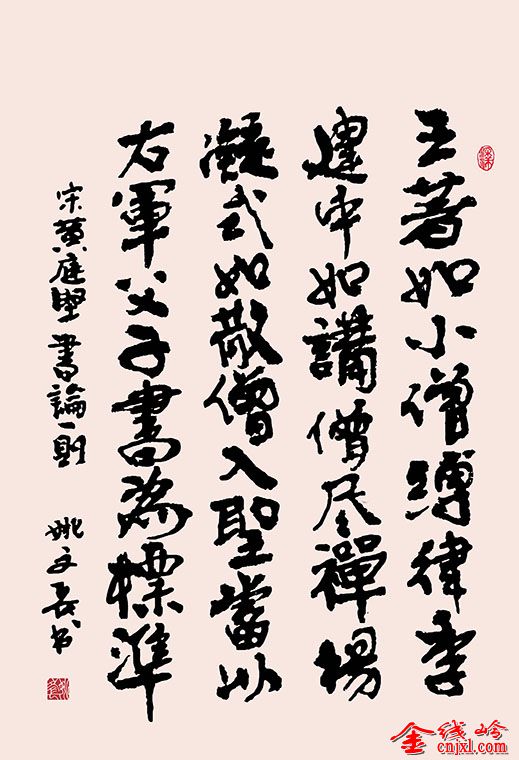 王著如小僧縛律李
建中如講僧參禪楊
凝式如散僧入聖當以
右軍父子書為標準
宋黄庭堅書論一則 姚文長书
金线岭
cnjxl.com